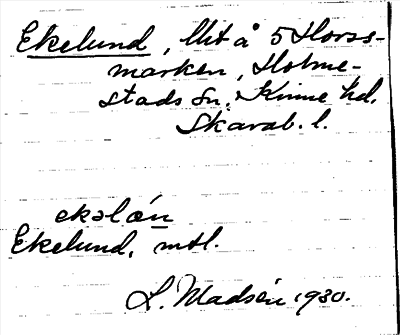 Ekelund, Utt å Storss-
marken, Holme-
stads sn, Kinne hd.
Skarab. l.
ekəlæn
Ekelund, mtl.
L. Madsén 1930.